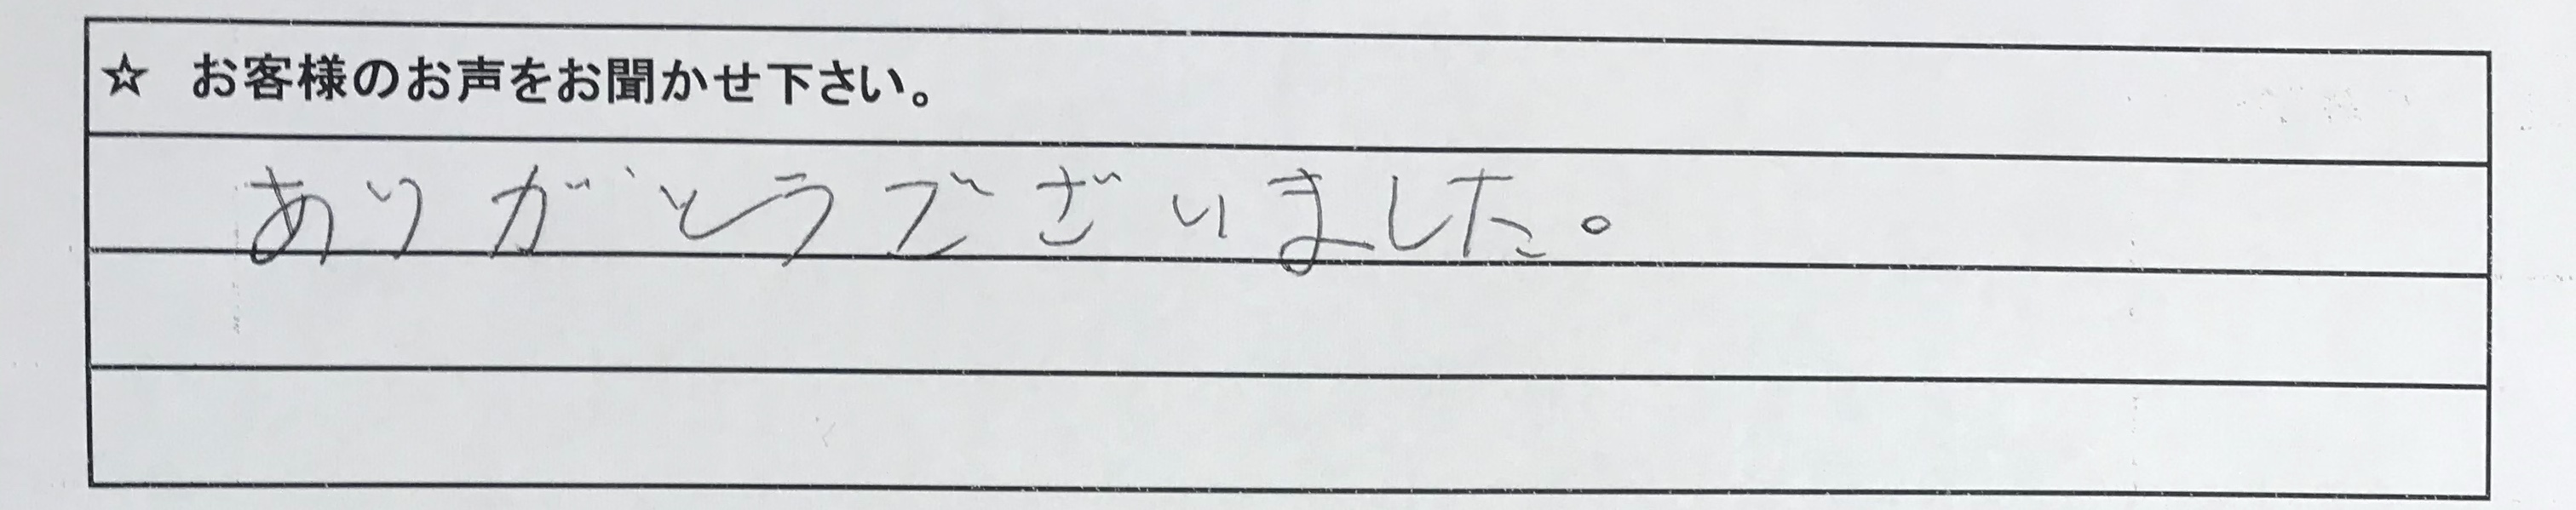 ☆ お客様のお声をお聞かせ下さい。
ありがとうございました。